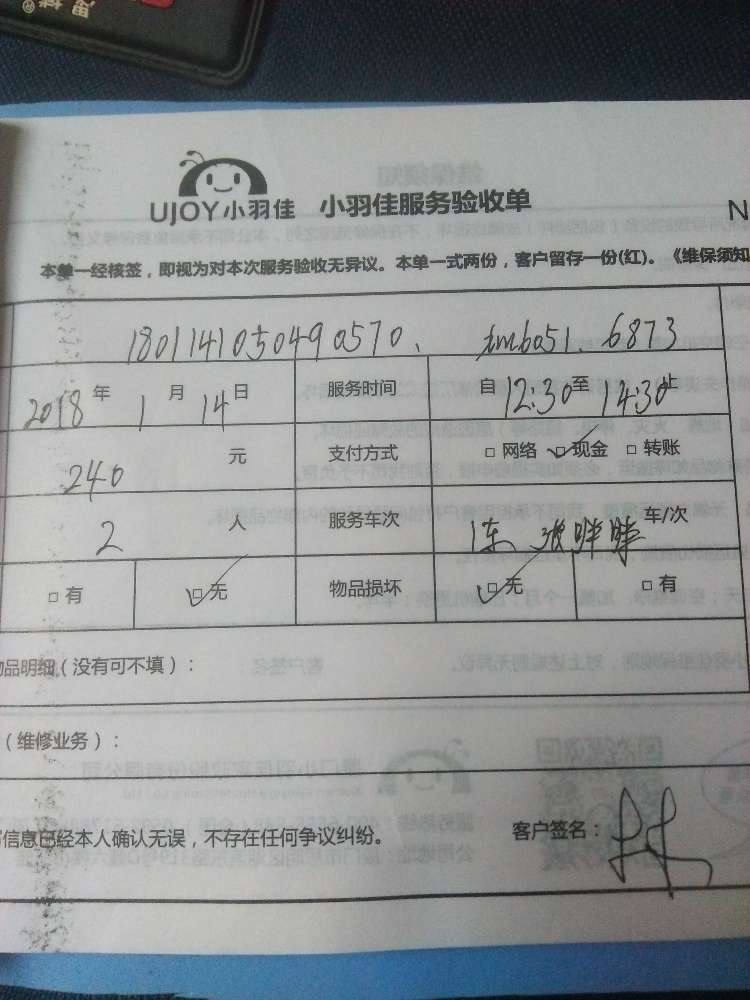 UJOY小羽佳 小羽佳服务验收单
N
本单一经核签，即视为对本次服务验收无异议。本单一式两份，客户留存一份(红)。《维保须知
1801141050490570、 tmb051. 6873
2018年1月14日 服务时间 自12:30至14:30止
240元 支付方式 □网络 □现金 □转账
2人 服务车次 车/次
□有 □无 物品损坏 □无 □有
品明细(没有可不填)：
(维修业务)：
信息已经本人确认无误，不存在任何争议纠纷。 客户签名：